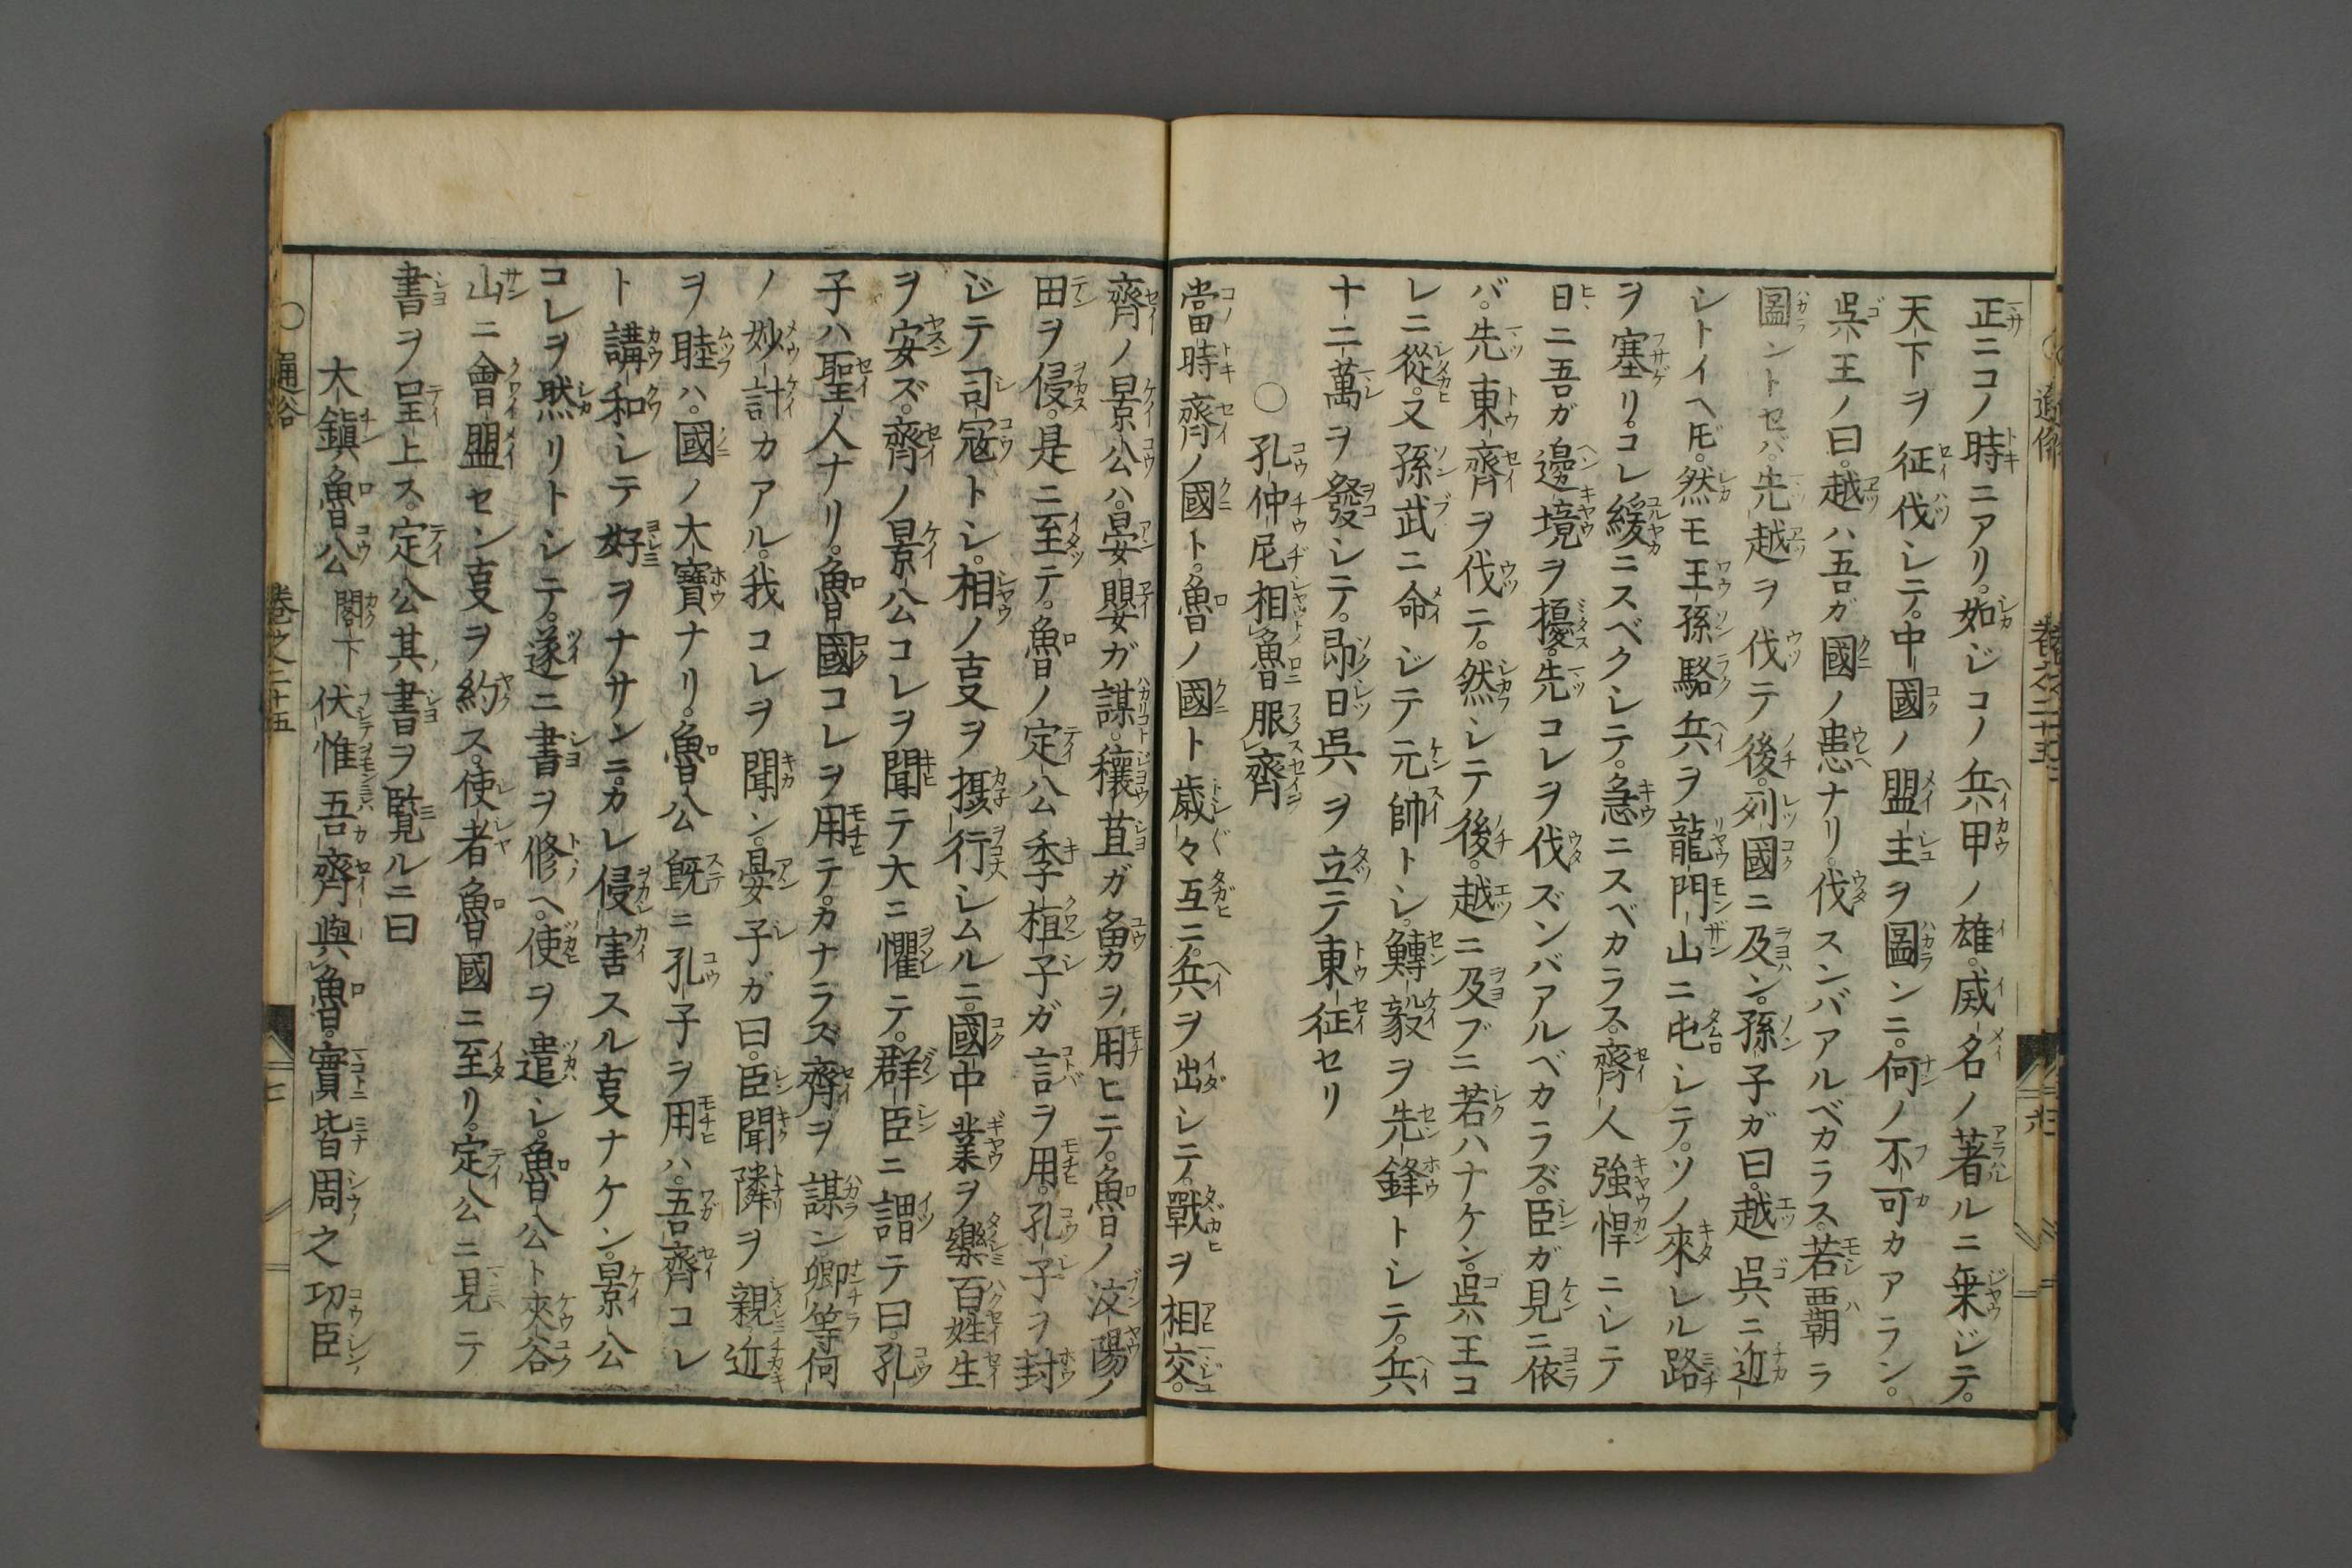 正ニコノ時ニアリ。如ジコノ兵甲ノ雄。威名ノ著ルニ乗ジテ。
天下ヲ征伐シテ。中國ノ盟主ヲ圖ンニ。何ノ不可カアラン。
呉王ノ曰。越ハ吾ガ國ノ患ナリ。伐スンバアルベカラス。若覇ラ
圖ントセバ。先越ヲ伐テ後。列國ニ及ン。孫子ガ曰。越呉ニ近
シトイヘ𪜈。然モ王孫駱兵ヲ龍門山ニ屯シテ。ソノ來レル路
ヲ塞リ。コレ緩ニスベクシテ。急ニスベカラス。齊人強悍ニシテ
日ニ吾ガ邊境ヲ擾。先コレヲ伐ズンバアルベカラズ。臣ガ見ニ依
バ。先東齊ヲ伐テ。然シテ後。越ニ及ブニ若ハナケン。呉王コ
レニ從。又孫武ニ命ジテ元帥トシ。鱄毅ヲ先鋒トシテ。兵
十二萬ヲ發シテ。即日呉ヲ立テ東征セリ
○孔仲尼相魯服齊
當時齊ノ國ト。魯ノ國ト歳々互ニ。兵ヲ出シテ。戰ヲ相交。
齊ノ景公ハ。晏嬰ガ謀。穰苴ガ勇カヲ用ヒテ。魯ノ汶陽ノ
田ヲ侵。是ニ至テ。魯ノ定公季桓子ガ言ヲ用。孔子ヲ封
ジテ司寇トシ。相ノ叓ヲ摂行シムルニ。國中業ヲ樂百姓生
ヲ安ズ。齊ノ景公コレヲ聞テ大ニ懼テ。群臣ニ謂テ曰。孔
子ハ聖人ナリ。魯國コレヲ用テ。カナラズ齊ヲ謀ン。卿等何
ノ妙計カアル。我コレヲ聞ン。晏子ガ曰。臣聞隣ヲ親近
ヲ睦ハ。國ノ大寶ナリ。魯公既ニ孔子ヲ用ハ。吾齊コレ
ト講和シテ好ヲナサンニ。カレ侵害スル叓ナケン。景公
コレヲ然リトシテ。遂ニ書ヲ修ヘ。使ヲ遣シ。魯公ト夾谷
山ニ會盟セン叓ヲ約ス。使者魯國ニ至リ。定公ニ見テ
書ヲ呈上ス。定公其書ヲ覧ルニ曰
大鎭魯公閣下伏惟吾齊與魯。實皆周之功臣
○通俗 巻之二十五 七